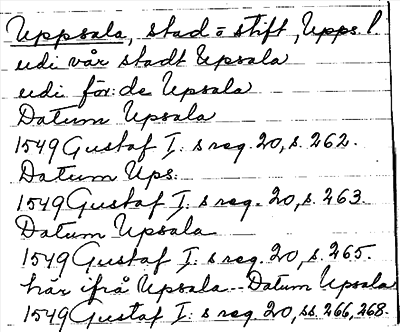 Uppsala, stad o stift, Upps. l.
udi vår stadt Upsala
udi för: de Upsala
Datum Upsala
1549 Gustaf I: s reg. 20, s. 262.
Datum Ups.
1549 Gustaf I: s reg. 20, s. 263.
Datum Upsala
1549 Gustaf I: s reg. 20, s. 265.
här ifrå Upsala -- Datum Upsala
1549 Gustaf I: s reg. 20, ss. 266, 268.